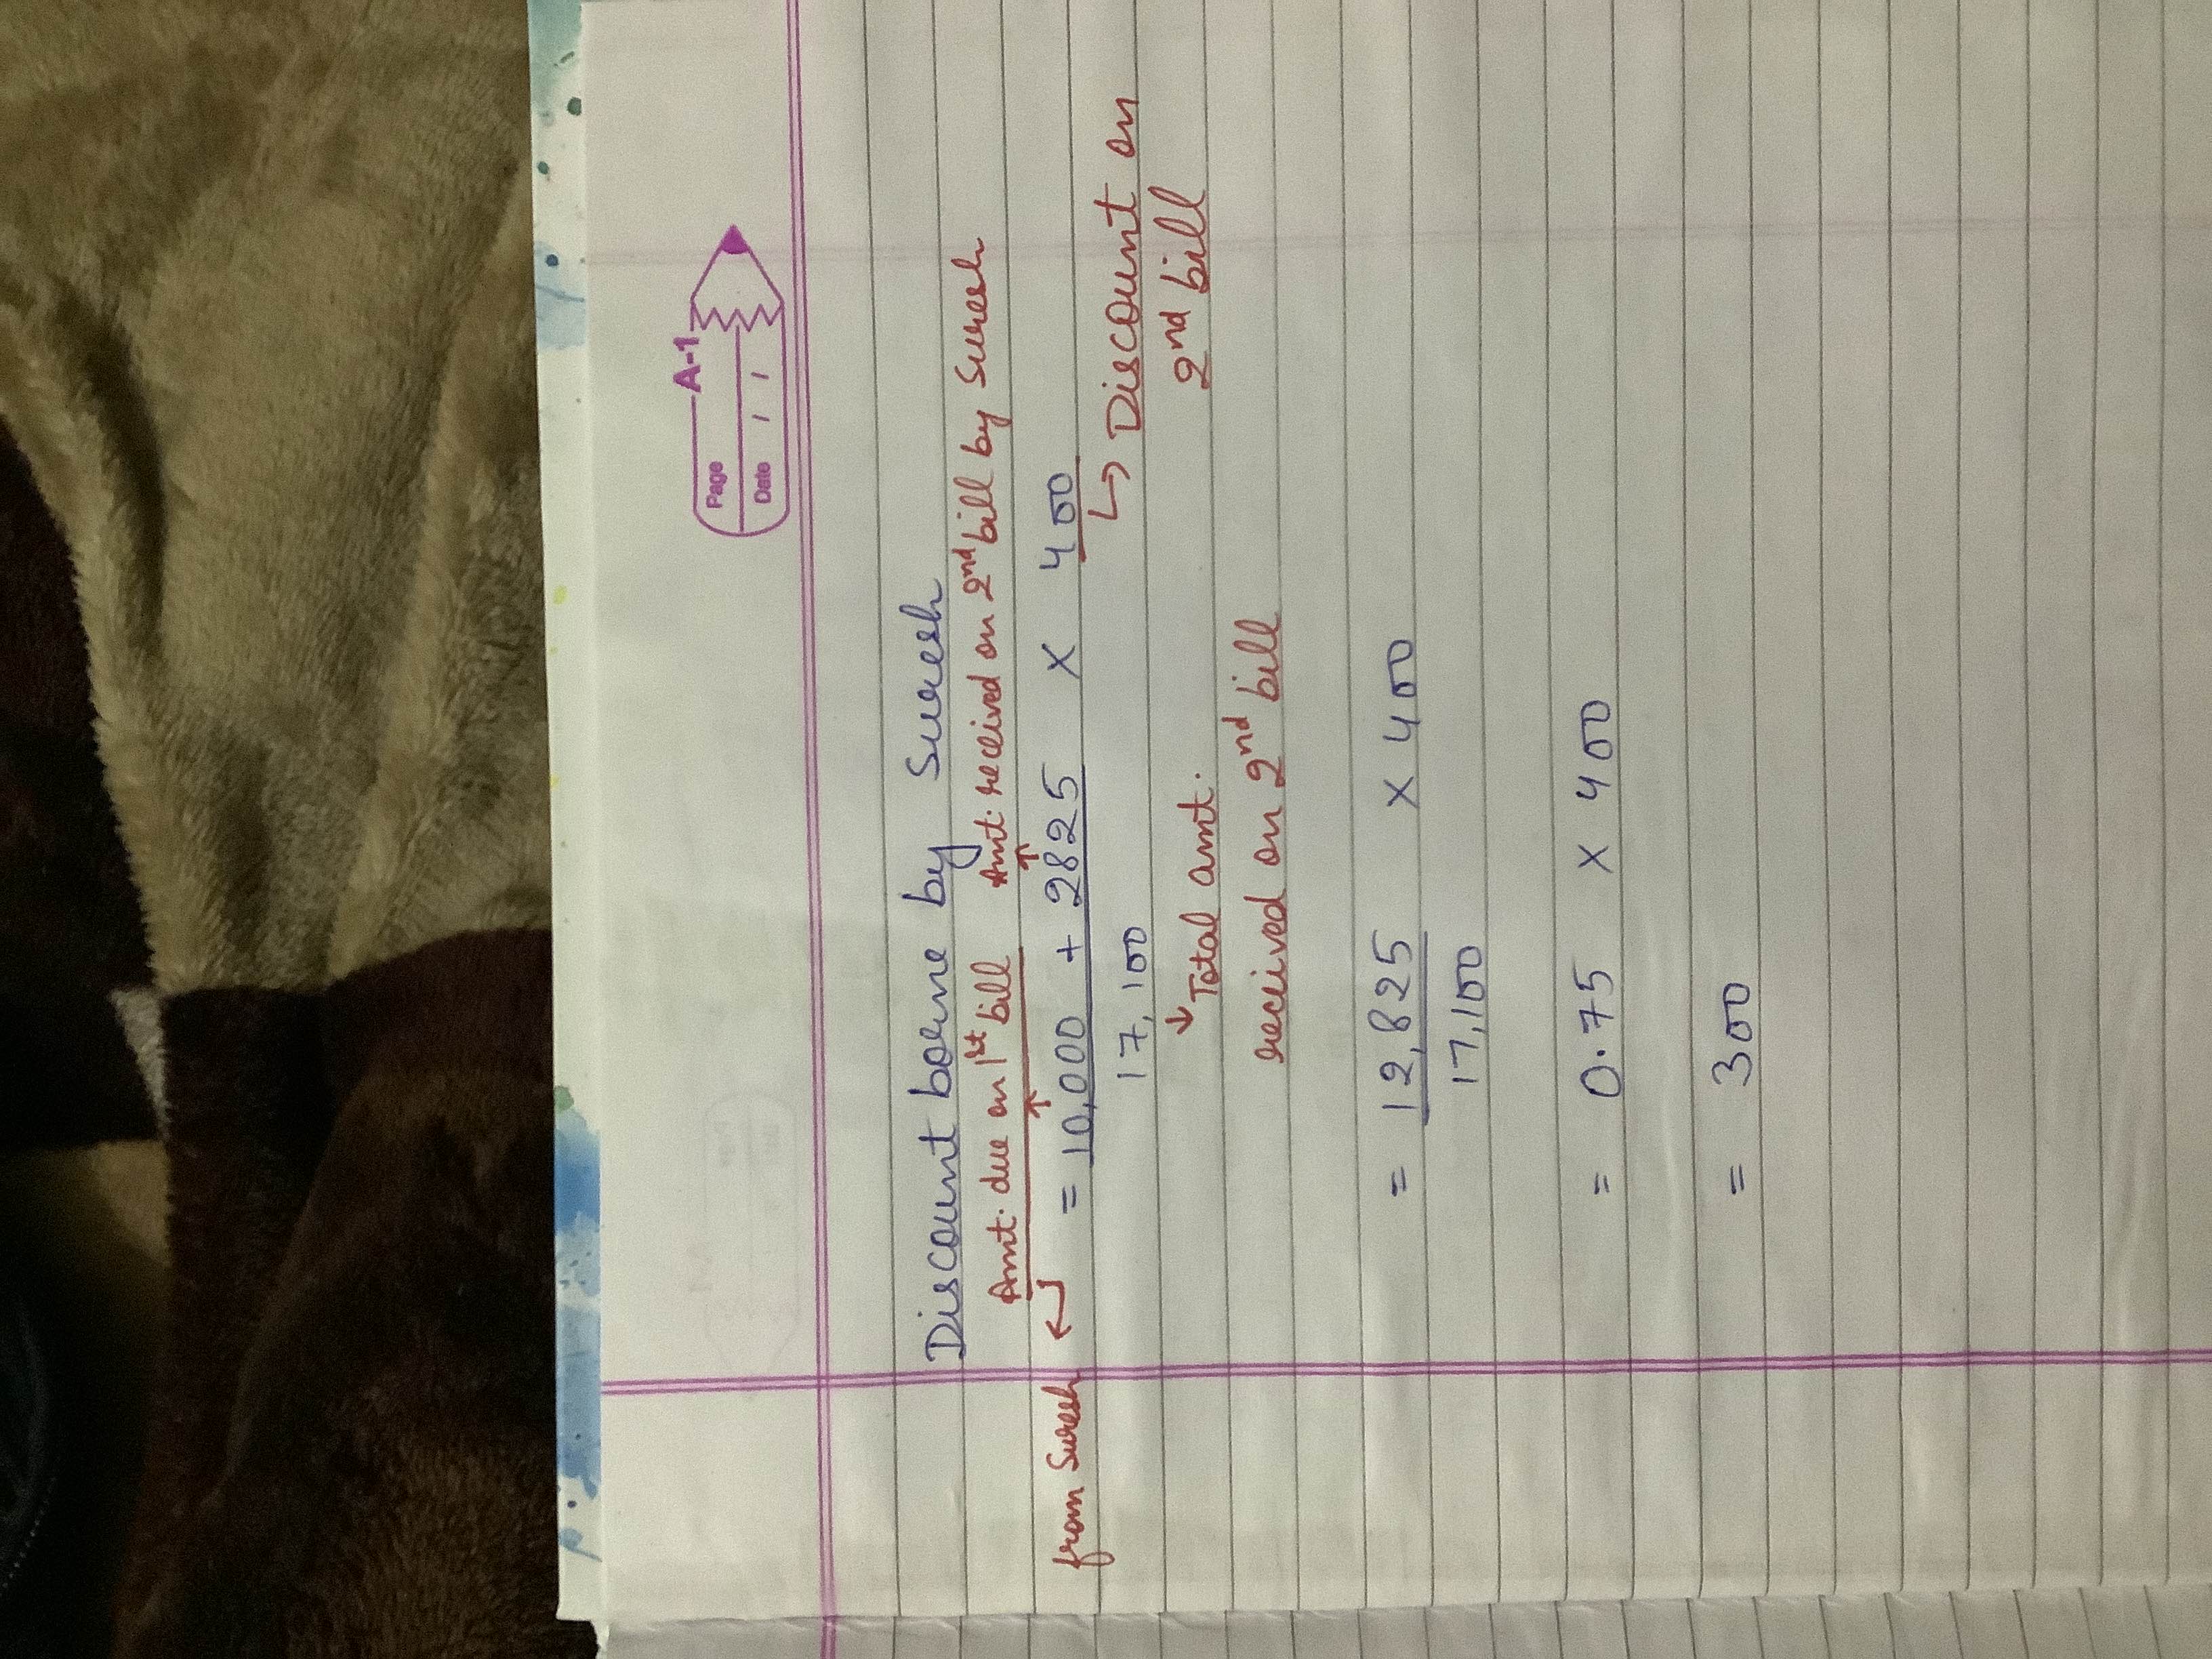 A-1
Page
Date / /
Discount borne by Suresh
Amt. due on 1st bill Amt. received on 2nd bill by Suresh
from Suresh = 10,000 + 2825 × 400
17,100
→ Discount on
2nd bill
↓ Total amt.
received on 2nd bill
= 12,825 × 400
17,100
= 0.75 × 400
= 300